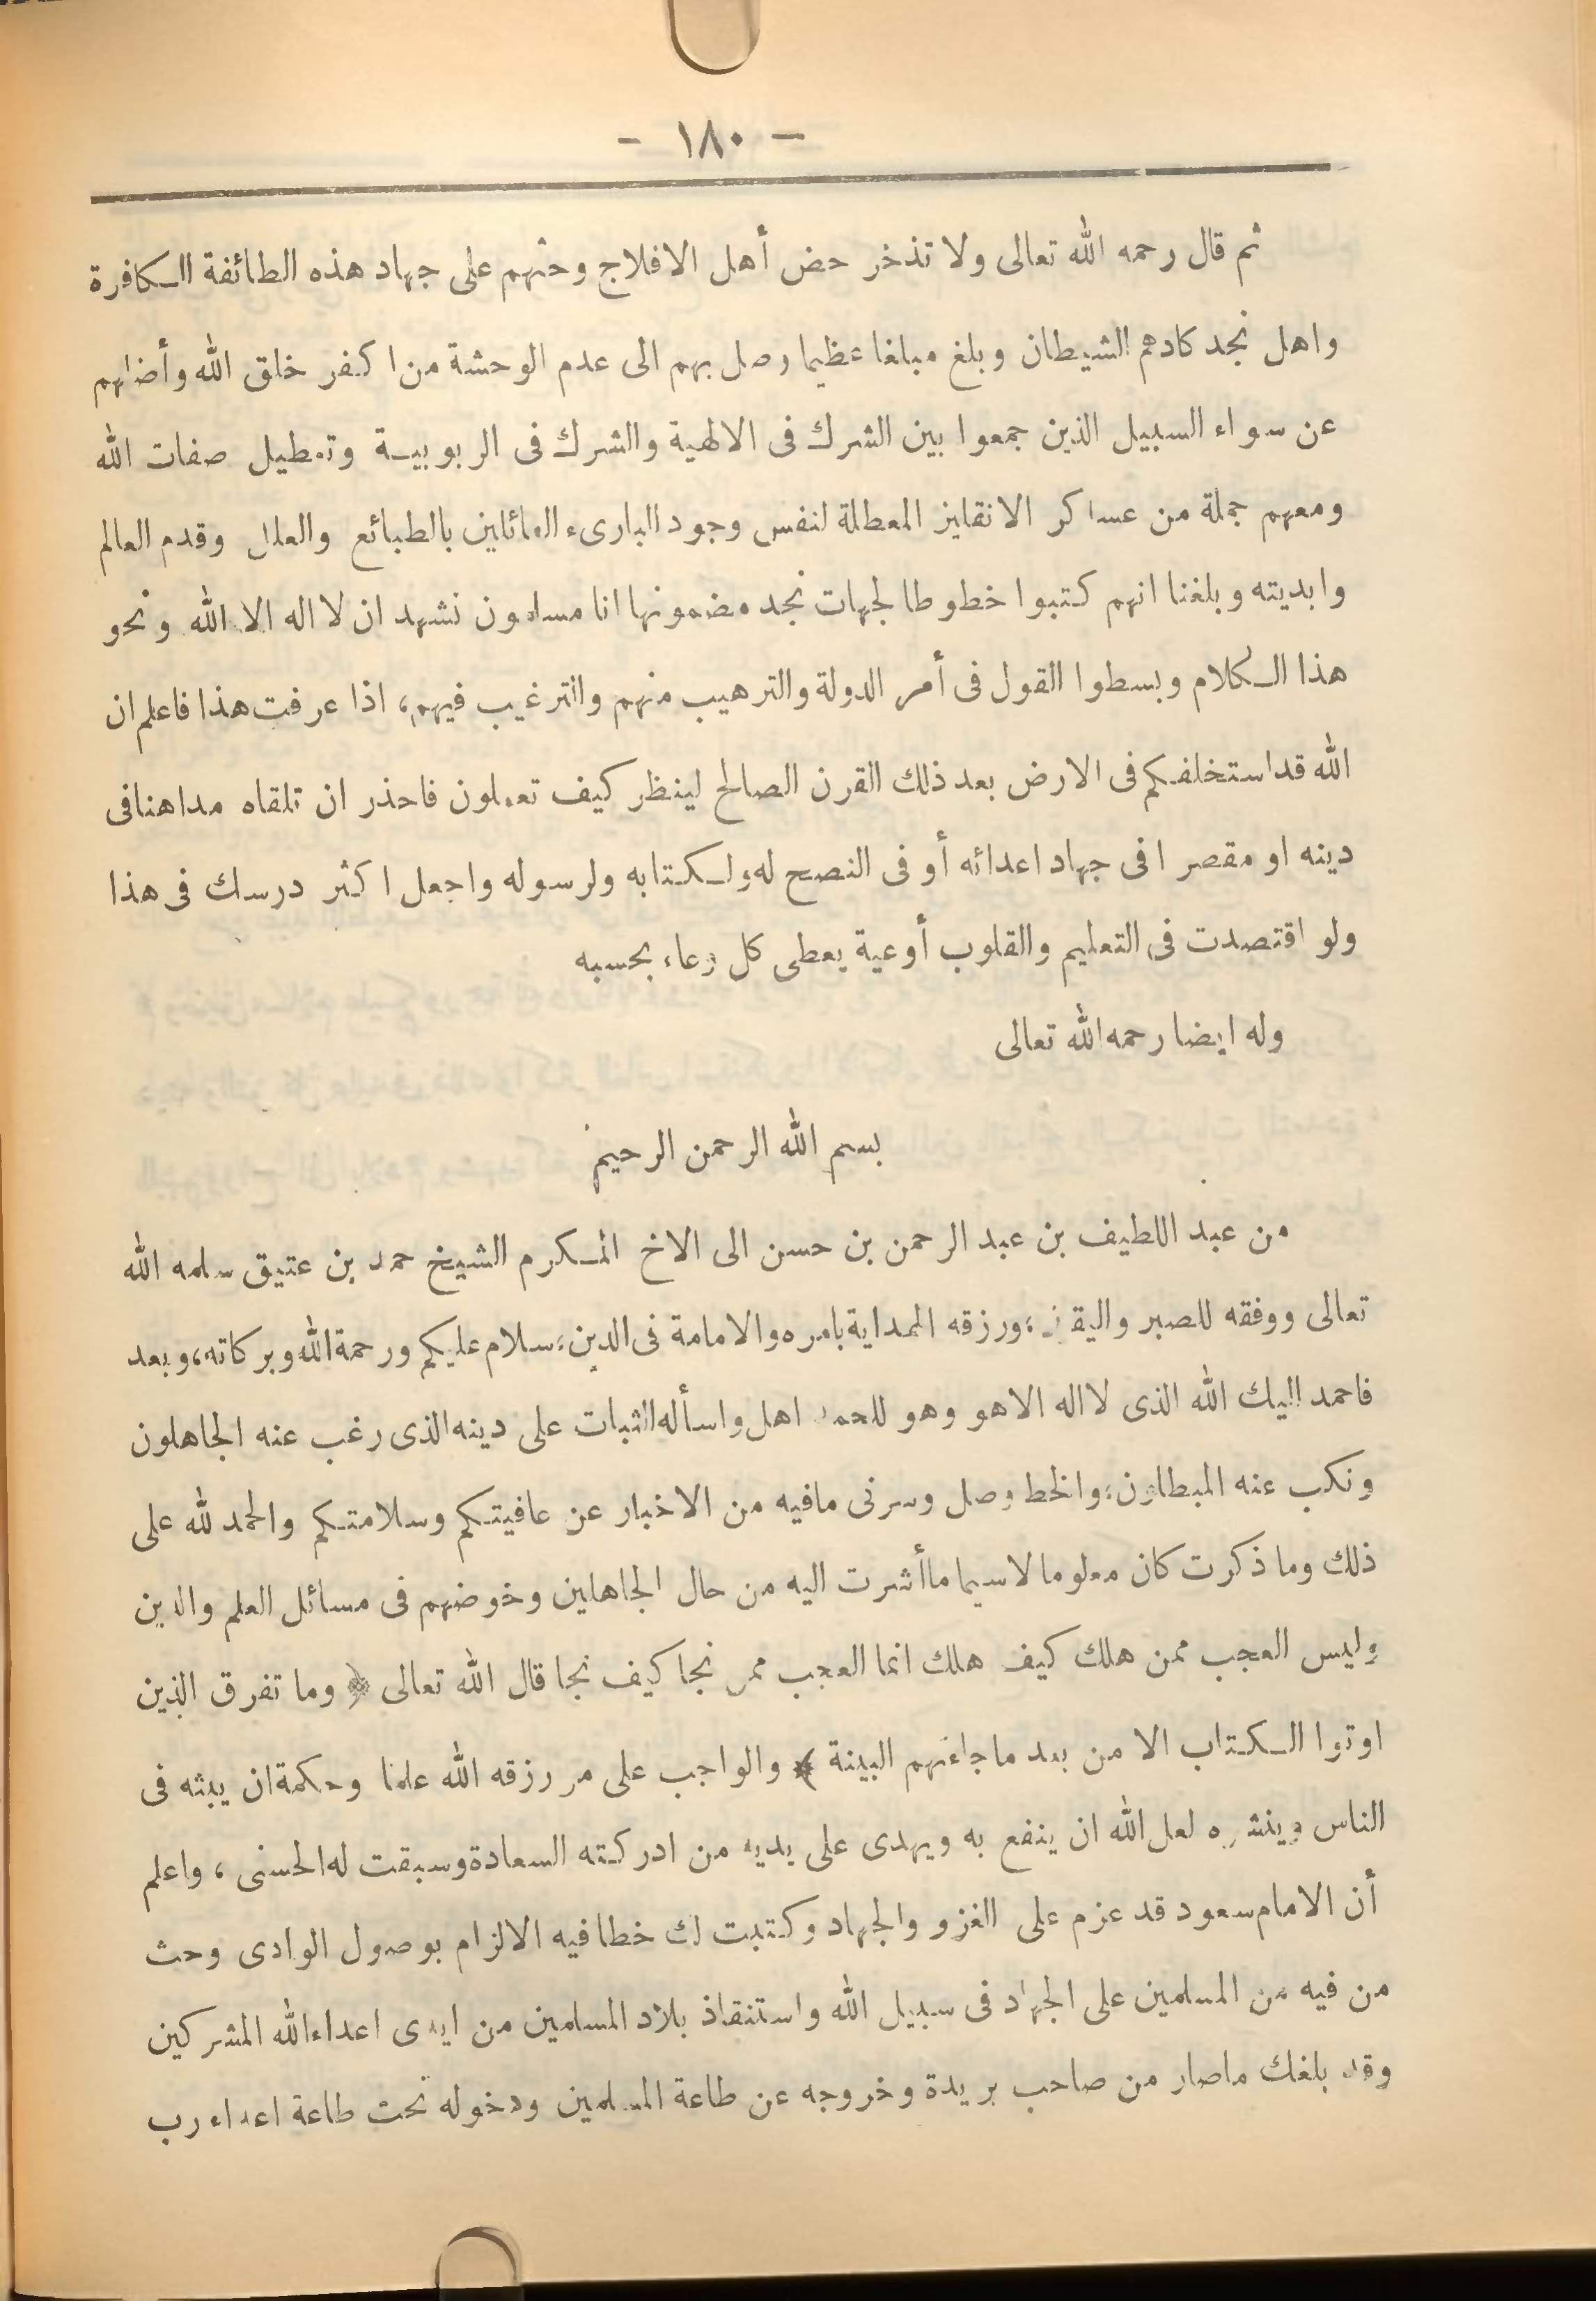 - ١٨٠ -
ثم قال رحمه الله تعالى ولا تذخر حض أهل الافلاج وحثهم على جهاد هذه الطائفة الكافرة
واهل نجد كادهم الشيطان وبلغ مبلغا عظيما وصل بهم الى عدم الوحشة من اكفر خلق الله وأضلهم
عن سواء السبيل الذين جمعوا بين الشرك فى الالهية والشرك فى الربوبية وتعطيل صفات الله
ومعهم جملة من عساكر الانقليز المعطلة لنفس وجود البارىء القائلين بالطبائع والعلل وقدم العالم
وابديته وبلغنا انهم كتبوا خطوطا لجهات نجد مضمونها انا مسلمون نشهد ان لا اله الا الله ونحو
هذا الكلام وبسطوا القول فى أمر الدولة والترهيب منهم والترغيب فيهم، اذا عرفت هذا فاعلم ان
الله قد استخلفكم فى الارض بعد ذلك القرن الصالح لينظر كيف تعملون فاحذر ان تلقاه مداهنا فى
دينه او مقصرا فى جهاد اعدائه أو فى النصح له ولكتابه ولرسوله واجعل اكثر درسك فى هذا
ولو اقتصدت فى التعليم والقلوب أوعية يعطى كل وعاء بحسبه
وله ايضا رحمه الله تعالى
بسم الله الرحمن الرحيم
من عبد اللطيف بن عبد الرحمن بن حسن الى الاخ المكرم الشيخ حمد بن عتيق سلمه الله
تعالى ووفقه للصبر واليقين، ورزقه الهداية بامره والامامة فى الدين، سلام عليكم ورحمة الله وبركاته، وبعد
فاحمد اليك الله الذى لا اله الا هو وهو للحمد اهل واسأله الثبات على دينه الذى رغب عنه الجاهلون
ونكب عنه المبطلون، والخط وصل وسرنى مافيه من الاخبار عن عافيتكم وسلامتكم والحمد لله على
ذلك وما ذكرت كان معلوما لاسيما ماأشرت اليه من حال الجاهلين وخوضهم فى مسائل العلم والدين
وليس العجب ممن هلك كيف هلك انما العجب ممن نجا كيف نجا قال الله تعالى ﴿ وما تفرق الذين
اوتوا الكتاب الا من بعد ماجاءتهم البينة ﴾ والواجب على من رزقه الله علما وحكمة ان يبثه فى
الناس وينشره لعل الله ان ينفع به ويهدى على يديه من ادركته السعادة وسبقت له الحسنى ، واعلم
أن الامام سعود قد عزم على الغزو والجهاد وكتبت لك خطا فيه الالزام بوصول الوادى وحث
من فيه من المسلمين على الجهاد فى سبيل الله واستنقاذ بلاد المسلمين من ايدى اعداء الله المشركين
وقد بلغك ماصار من صاحب بريدة وخروجه عن طاعة المسلمين ودخوله تحت طاعة اعداء رب